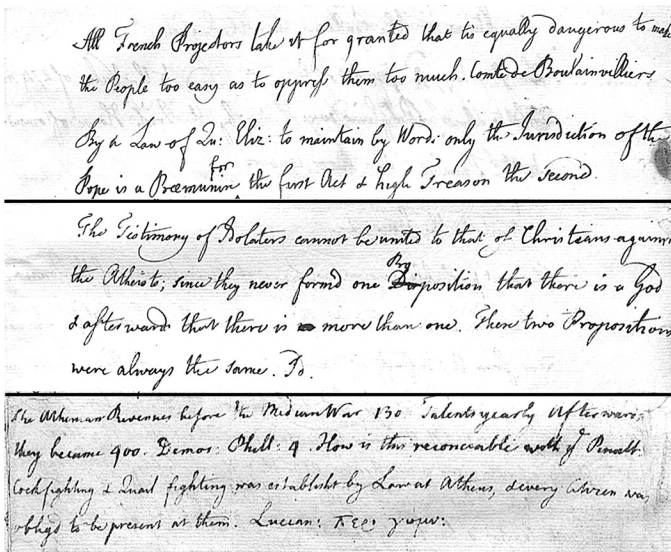 All French Projectors take it for granted that tis equally dangerous to make
the People too easy as to oppress them too much. Comte de Boulainvilliers
By a Law of Qu: Eliz: to maintain by Word only the Jurisdiction of the
for
Pope is a Præmunire the first Act & high Treason the second.
The Testimony of Idolaters cannot be united to that of Christians against
Pro
the Atheists; since they never form'd one Disposition that there is a God
& afterwards that there is more than one. These two Propositions
were always the same. Id.
The Athenian Revenues before the Median War 130 Talents yearly Afterwards
they became 400. Demos: Phil: 4. How is this reconceable with ye
Cockfighting & Quail fighting was establisht by Law at Athens, & every Citizen was
oblig'd to be present at them. Lucian: περι γυμν: